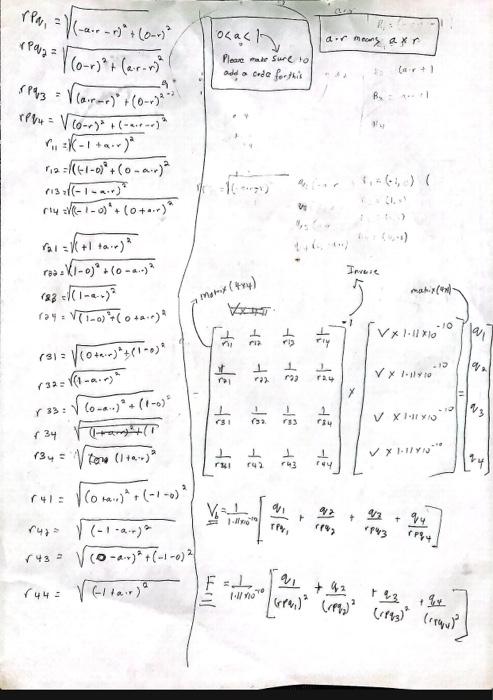 rpq₁ = √((-a.r-r)² + (0-r)²
rpq₂ = √((0-r)² + (a.r-r)²
rpq3 = √((a.r-r)² + (0-r)²
rpq4 = √((0-r)² + (-a.r-r)²
r11 = √(-1+a.r)²
r12 = √((-1-0)² + (0-a.r)²
r13 = √(-1-a.r)²
r14 = √((-1-0)² + (0+a.r)²
r21 = √(+1+a.r)²
r22 = √(1-0)² + (0-a.r)²
r23 = √(1-a.r)²
r24 = √(1-0)² + (0+a.r)²
r31 = √(0+a.r)² + (1-0)²
r32 = √(1-a.r)²
r33 = √(0-a.r)² + (1-0)²
r34
r34 = √(1+a.r)²
r41 = √(0+a.r)² + (-1-0)²
r42 = √(-1-a.r)²
r43 = √(0-a.r)² + (-1-0)²
r44 = √(-1+a.r)²
0<a<1
Please make sure to
add a code for this
a.r means a x r
(a.r+1
Inverse
matrix (4x4)
matrix (4x1)
1/r11 1/r12 1/r13 1/r14 -1 V x 1.11x10⁻¹⁰ q1
1/r21 1/r22 1/r23 1/r24 V x 1.11x10⁻¹⁰ q2
x =
1/r31 1/r32 1/r33 1/r34 V x 1.11x10⁻¹⁰ q3
1/r41 1/r42 1/r43 1/r44 V x 1.11x10⁻¹⁰ q4
V = 1/1.11x10⁻¹⁰ [q1/rpq1 + q2/rpq2 + q3/rpq3 + q4/rpq4]
F = 1/1.11x10⁻¹⁰ [q1/(rpq1)² + q2/(rpq2)² + q3/(rpq3)² + q4/(rpq4)²]